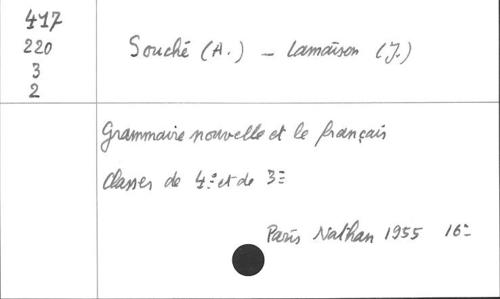 417
220
3
2
Souché (A.) - Lamaison (J.)
Grammaire nouvelle et le français
Classes de 4e et de 3e
Paris Nathan 1955 16°